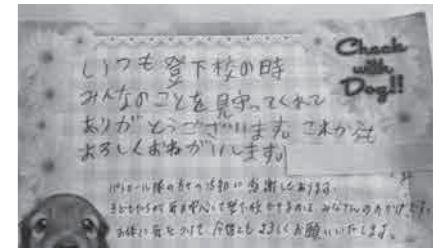 Check
with
Dog!!
いつも登下校の時
みんなのことを見守ってくれて
ありがとうございます。これからも
よろしくおねがいします。
パトロール隊の方々の活動に感謝しております。
子どもたちが毎日安心して登下校できるのは、みなさんのおかげです。
お体に気をつけて、今後ともよろしくお願いいたします。